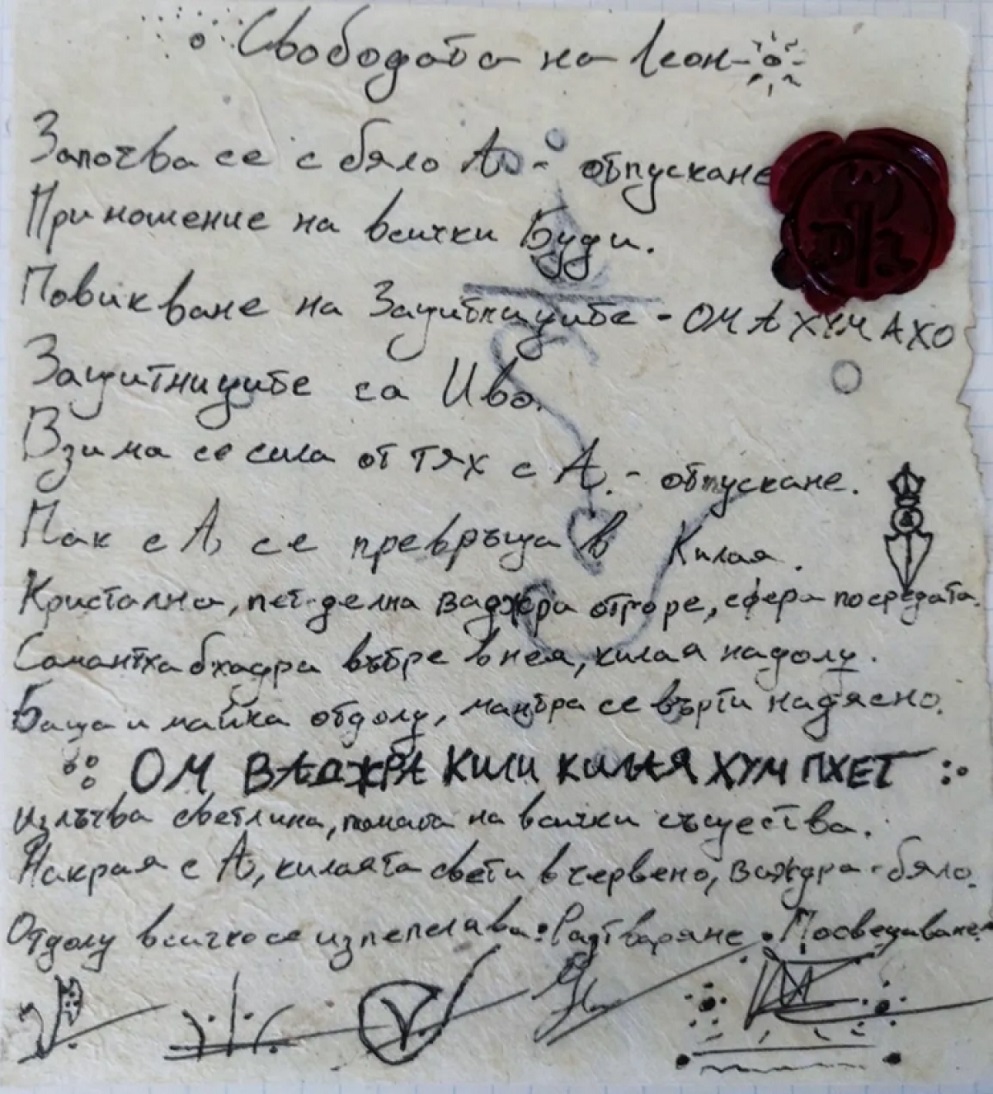 Свободата на Леон
Започва се с бяло А - отпускане
Приношение на всички Буди.
Повикване на Защитниците - ОМ А ХУМ АХО
Защитниците са Иво.
Взима се сила от тях с А. - отпускане.
Пак с А се превръща в Килая.
Кристална, пет-делна ваджра отгоре, сфера посредата.
Самантхабхадра вътре в нея, килая надолу.
Баща и майка отдолу, мантра се върти надясно.
ОМ ВАДЖРА КИЛИ КИЛАЯ ХУМ ПХЕТ
излъчва светлина, помага на всички същества.
Накрая с А, килаята свети в червено, важдра - бяло.
Отдолу всичко се изпепелява. Разтваряне. Посвещаване.